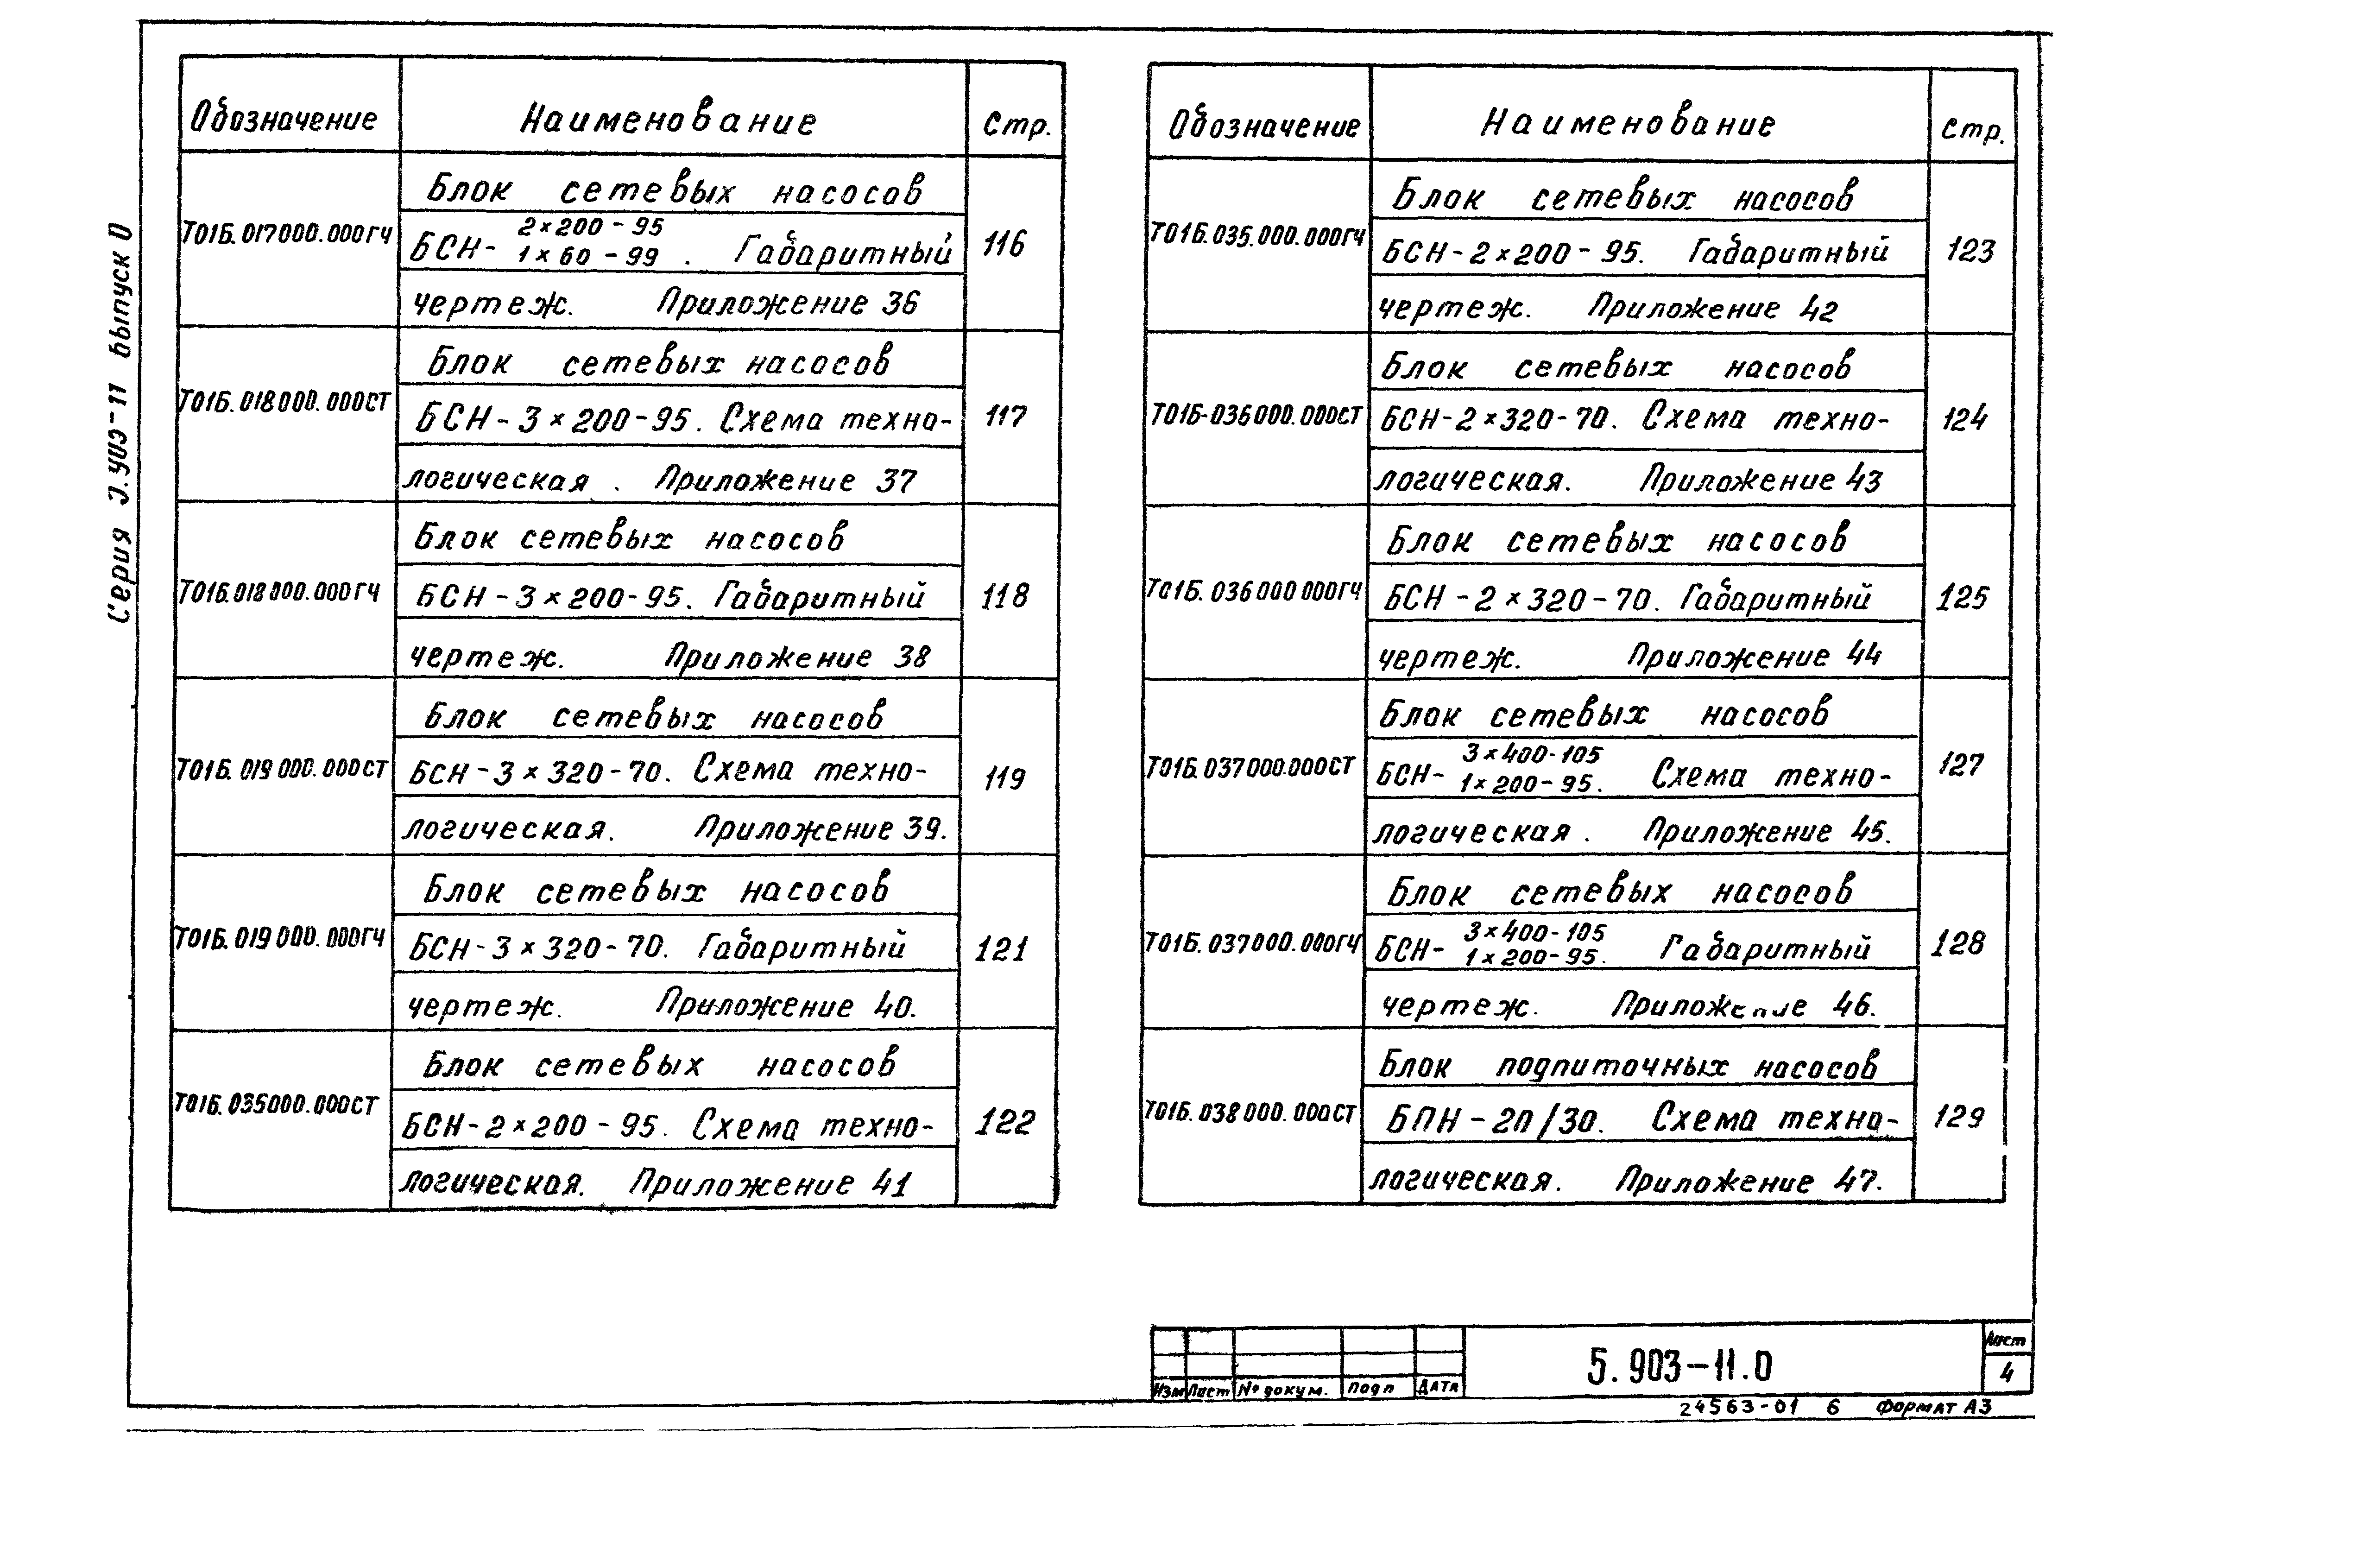 Серия 5.903-11 выпуск 0
Обозначение Наименование Стр.
Т01Б.017000.000ГЧ
Блок сетевых насосов
2×200-95
БСН- 1×60-99 . Габаритный 116
чертеж. Приложение 36
Блок сетевых насосов
Т01Б.018000.000СТ БСН-3×200-95. Схема техно- 117
логическая. Приложение 37
Блок сетевых насосов
Т01Б.018000.000ГЧ БСН-3×200-95. Габаритный 118
чертеж. Приложение 38
Блок сетевых насосов
Т01Б.019000.000СТ БСН-3×320-70. Схема техно- 119
логическая. Приложение 39.
Блок сетевых насосов
Т01Б.019000.000ГЧ БСН-3×320-70. Габаритный 121
чертеж. Приложение 40.
Блок сетевых насосов
Т01Б.035000.000СТ БСН-2×200-95. Схема техно- 122
логическая. Приложение 41
Обозначение Наименование Стр.
Блок сетевых насосов
Т01Б.035.000.000ГЧ БСН-2×200-95. Габаритный 123
чертеж. Приложение 42
Блок сетевых насосов
Т01Б-036000.000СТ БСН-2×320-70. Схема техно- 124
логическая. Приложение 43
Блок сетевых насосов
Т01Б.036000000ГЧ БСН-2×320-70. Габаритный 125
чертеж. Приложение 44
Блок сетевых насосов
3×400-105
Т01Б.037000.000СТ БСН- 1×200-95. Схема техно- 127
логическая. Приложение 45.
Блок сетевых насосов
3×400-105
Т01Б.037000.000ГЧ БСН- 1×200-95. Габаритный 128
чертеж. Приложение 46.
Блок подпиточных насосов
Т01Б.038000.000СТ БПН-20/30. Схема техно- 129
логическая. Приложение 47.
Изм Лист № докум. Подп Дата
5.903-11.0
Лист
4
24563-01 6 Формат А3